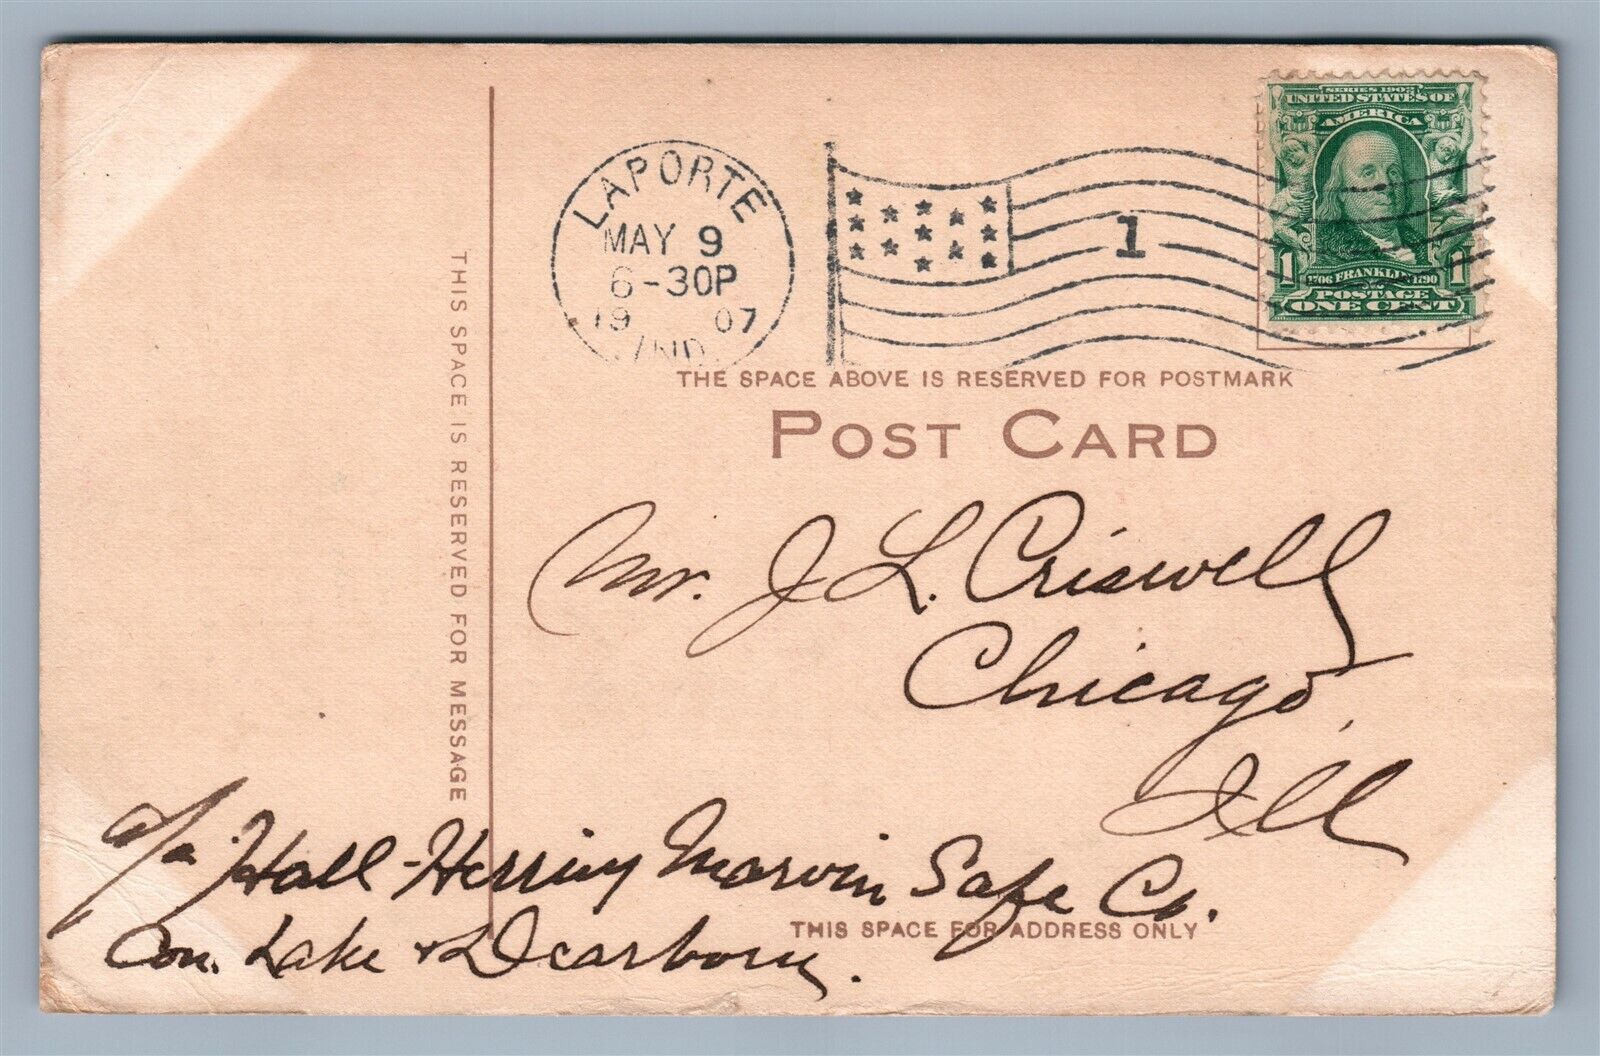 SERIES 1902
UNITED STATES OF
AMERICA
1 1
1706 FRANKLIN 1790
POSTAGE
ONE CENT
LAPORTE
MAY 9
6-30P
19 07
IND.
1
THE SPACE ABOVE IS RESERVED FOR POSTMARK
POST CARD
THIS SPACE IS RESERVED FOR MESSAGE
Mr. J. L. Criswell
Chicago,
Ill
c/o Hall-Herring Marvin Safe Co.
Cor. Lake + Dearborn.
THIS SPACE FOR ADDRESS ONLY